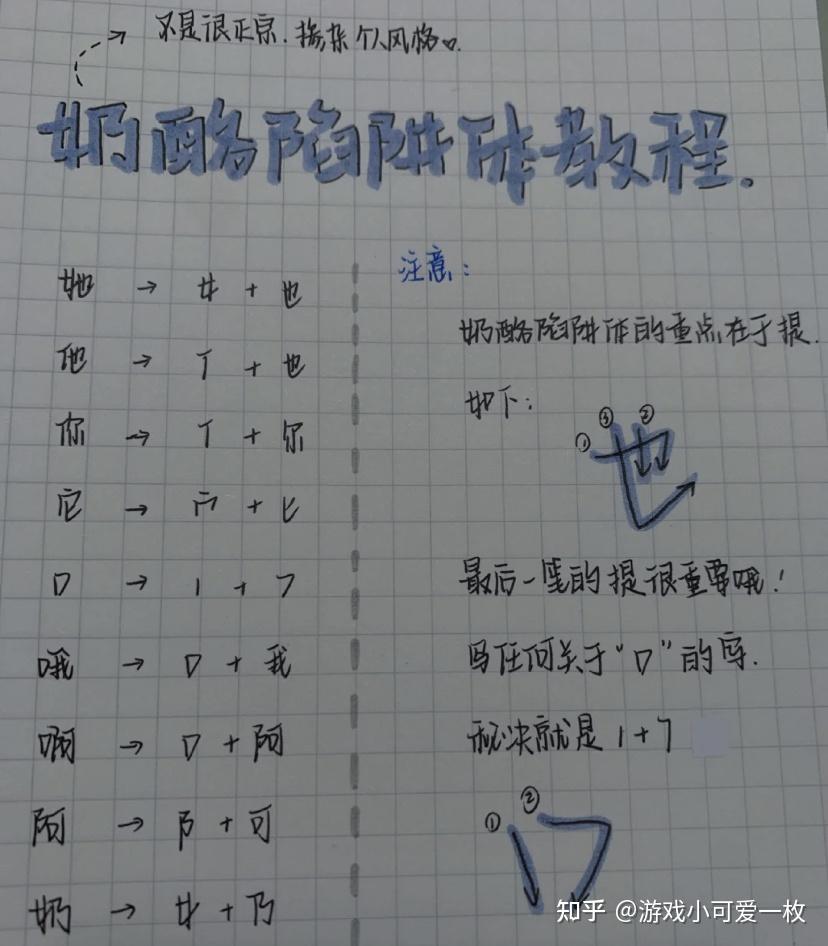 不是很正宗.掺杂个人风格
奶酪陷阱体教程.
她 → 女 + 也
他 → 亻 + 也
你 → 亻 + 尔
它 → 宀 + 匕
口 → 1 + 7
哦 → 口 + 我
啊 → 口 + 阿
阿 → 阝 + 可
奶 → 女 + 乃
注意：
奶酪陷阱体的重点在于提.
如下：
① ③ ②
也
最后一笔的提很重要哦！
写任何关于“口”的字.
秘诀就是 1+7
① ②
口
知乎 @游戏小可爱一枚